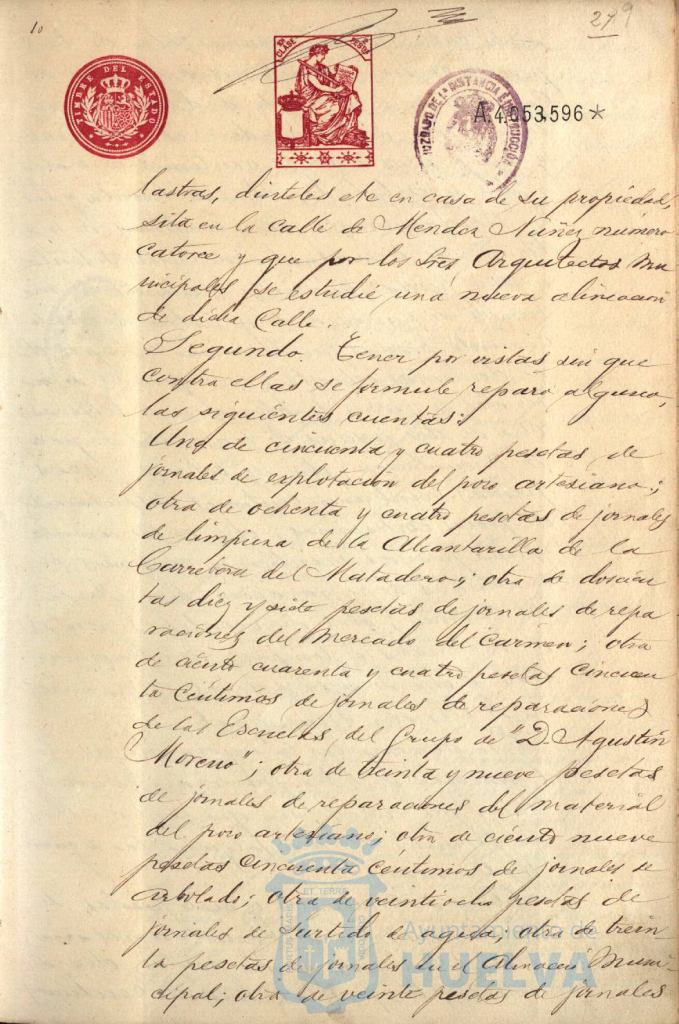 10
279
TIMBRE DEL ESTADO
CLASE
A.4,053,596*
JUZGADO DE 1ª INSTANCIA É INSTRUCCIÓN
lastras, dinteles etc en casa de su propiedad,
sita en la calle de Mendez Nuñez número
catorce y que por los Sres Arquitectos Mu
nicipales se estudie una nueva alineacion
de dicha Calle.
Segundo. Tener por vistas sin que
contra ellas se formule reparo alguno,
las siguientes cuentas:
Una de cincuenta y cuatro pesetas de
jornales de explotacion del pozo artesiano;
otra de ochenta y cuatro pesetas de jornales
de limpieza de la Alcantarilla de la
Carretera del Matadero; otra de doscien
tas diez y siete pesetas de jornales de repa
raciones del Mercado del Carmen; otra
de ciento cuarenta y cuatro pesetas cincuen
ta céntimos de jornales de reparaciones
de las Escuelas del Grupo de "D. Agustin
Moreno"; otra de treinta y nueve pesetas
de jornales de reparaciones del material
del pozo artesiano; otra de ciento nueve
pesetas cincuenta céntimos de jornales de
arbolado; otra de veintiocho pesetas de
jornales de surtido de agua; otra de trein
ta pesetas de jornales en el Almacén Muni-
cipal; otra de veinte pesetas de jornales
ET TERRA
Ayuntamiento de
HUELVA